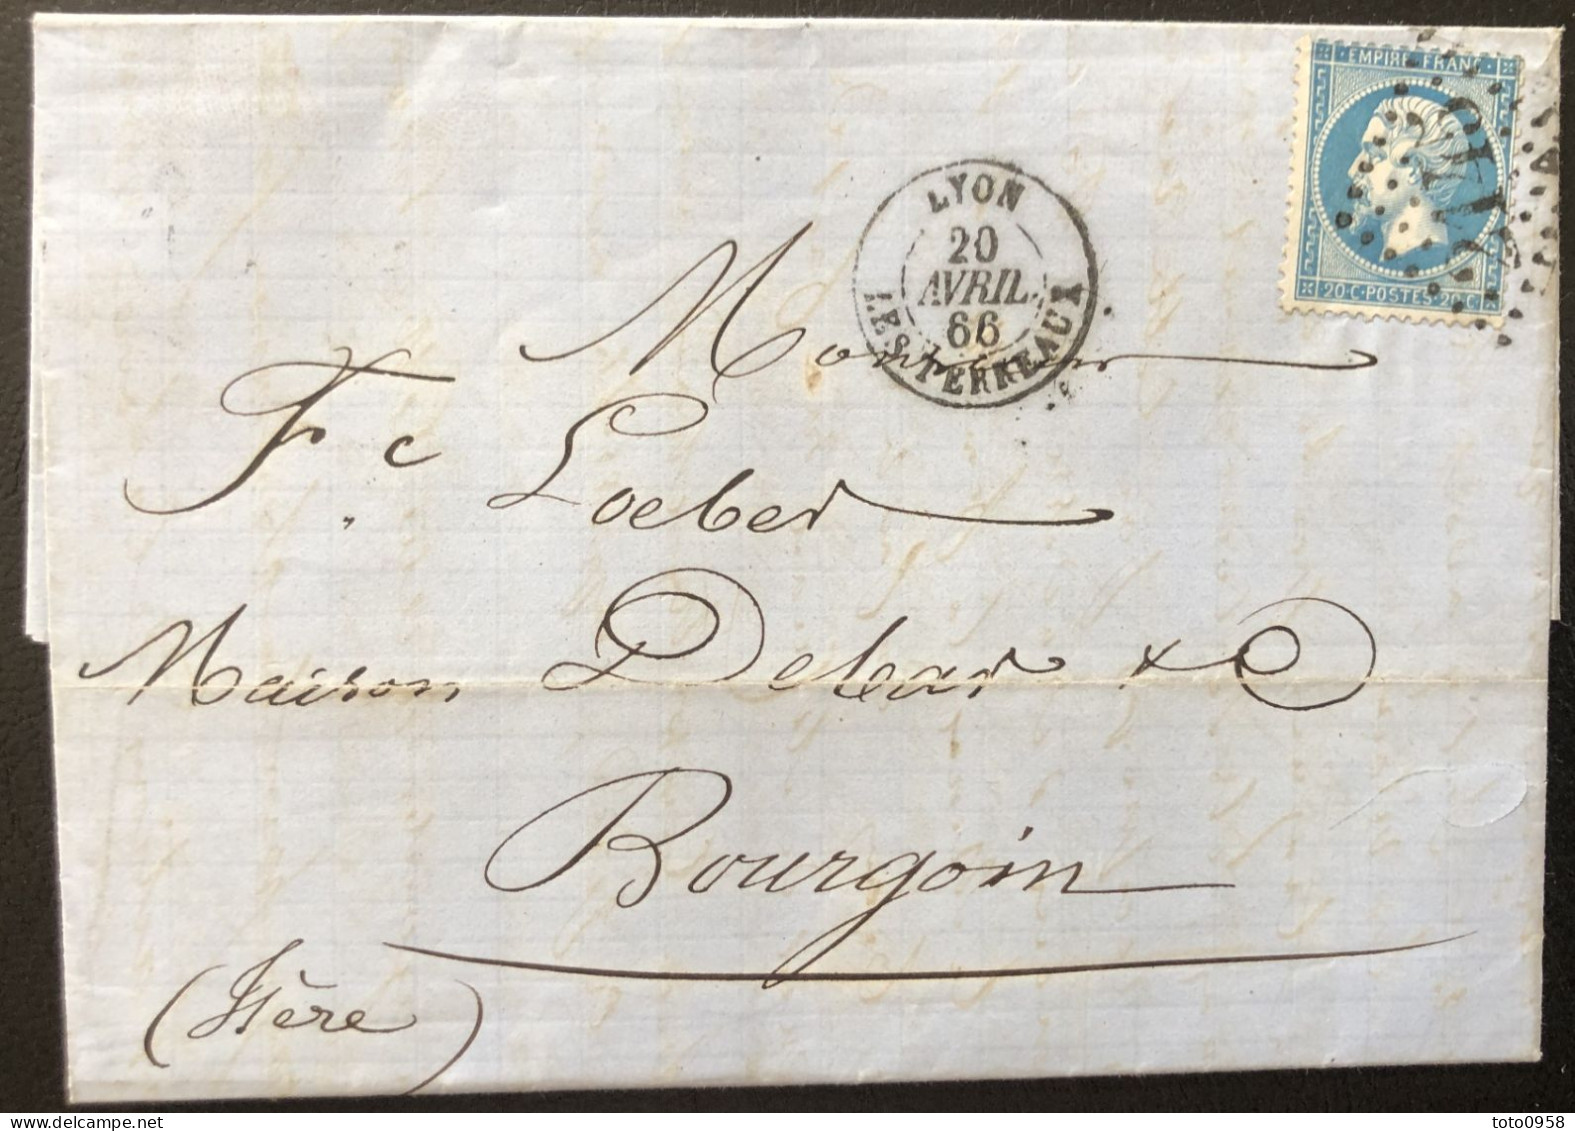 EMPIRE FRANC
20 C · POSTES · 20 C
2145
LYON
20
AVRIL
66
LES TERREAUX
Monsieur
Fc Loeber
Maison Debar & C
Bourgoin
(Isère)
delcampe.net
toto0958